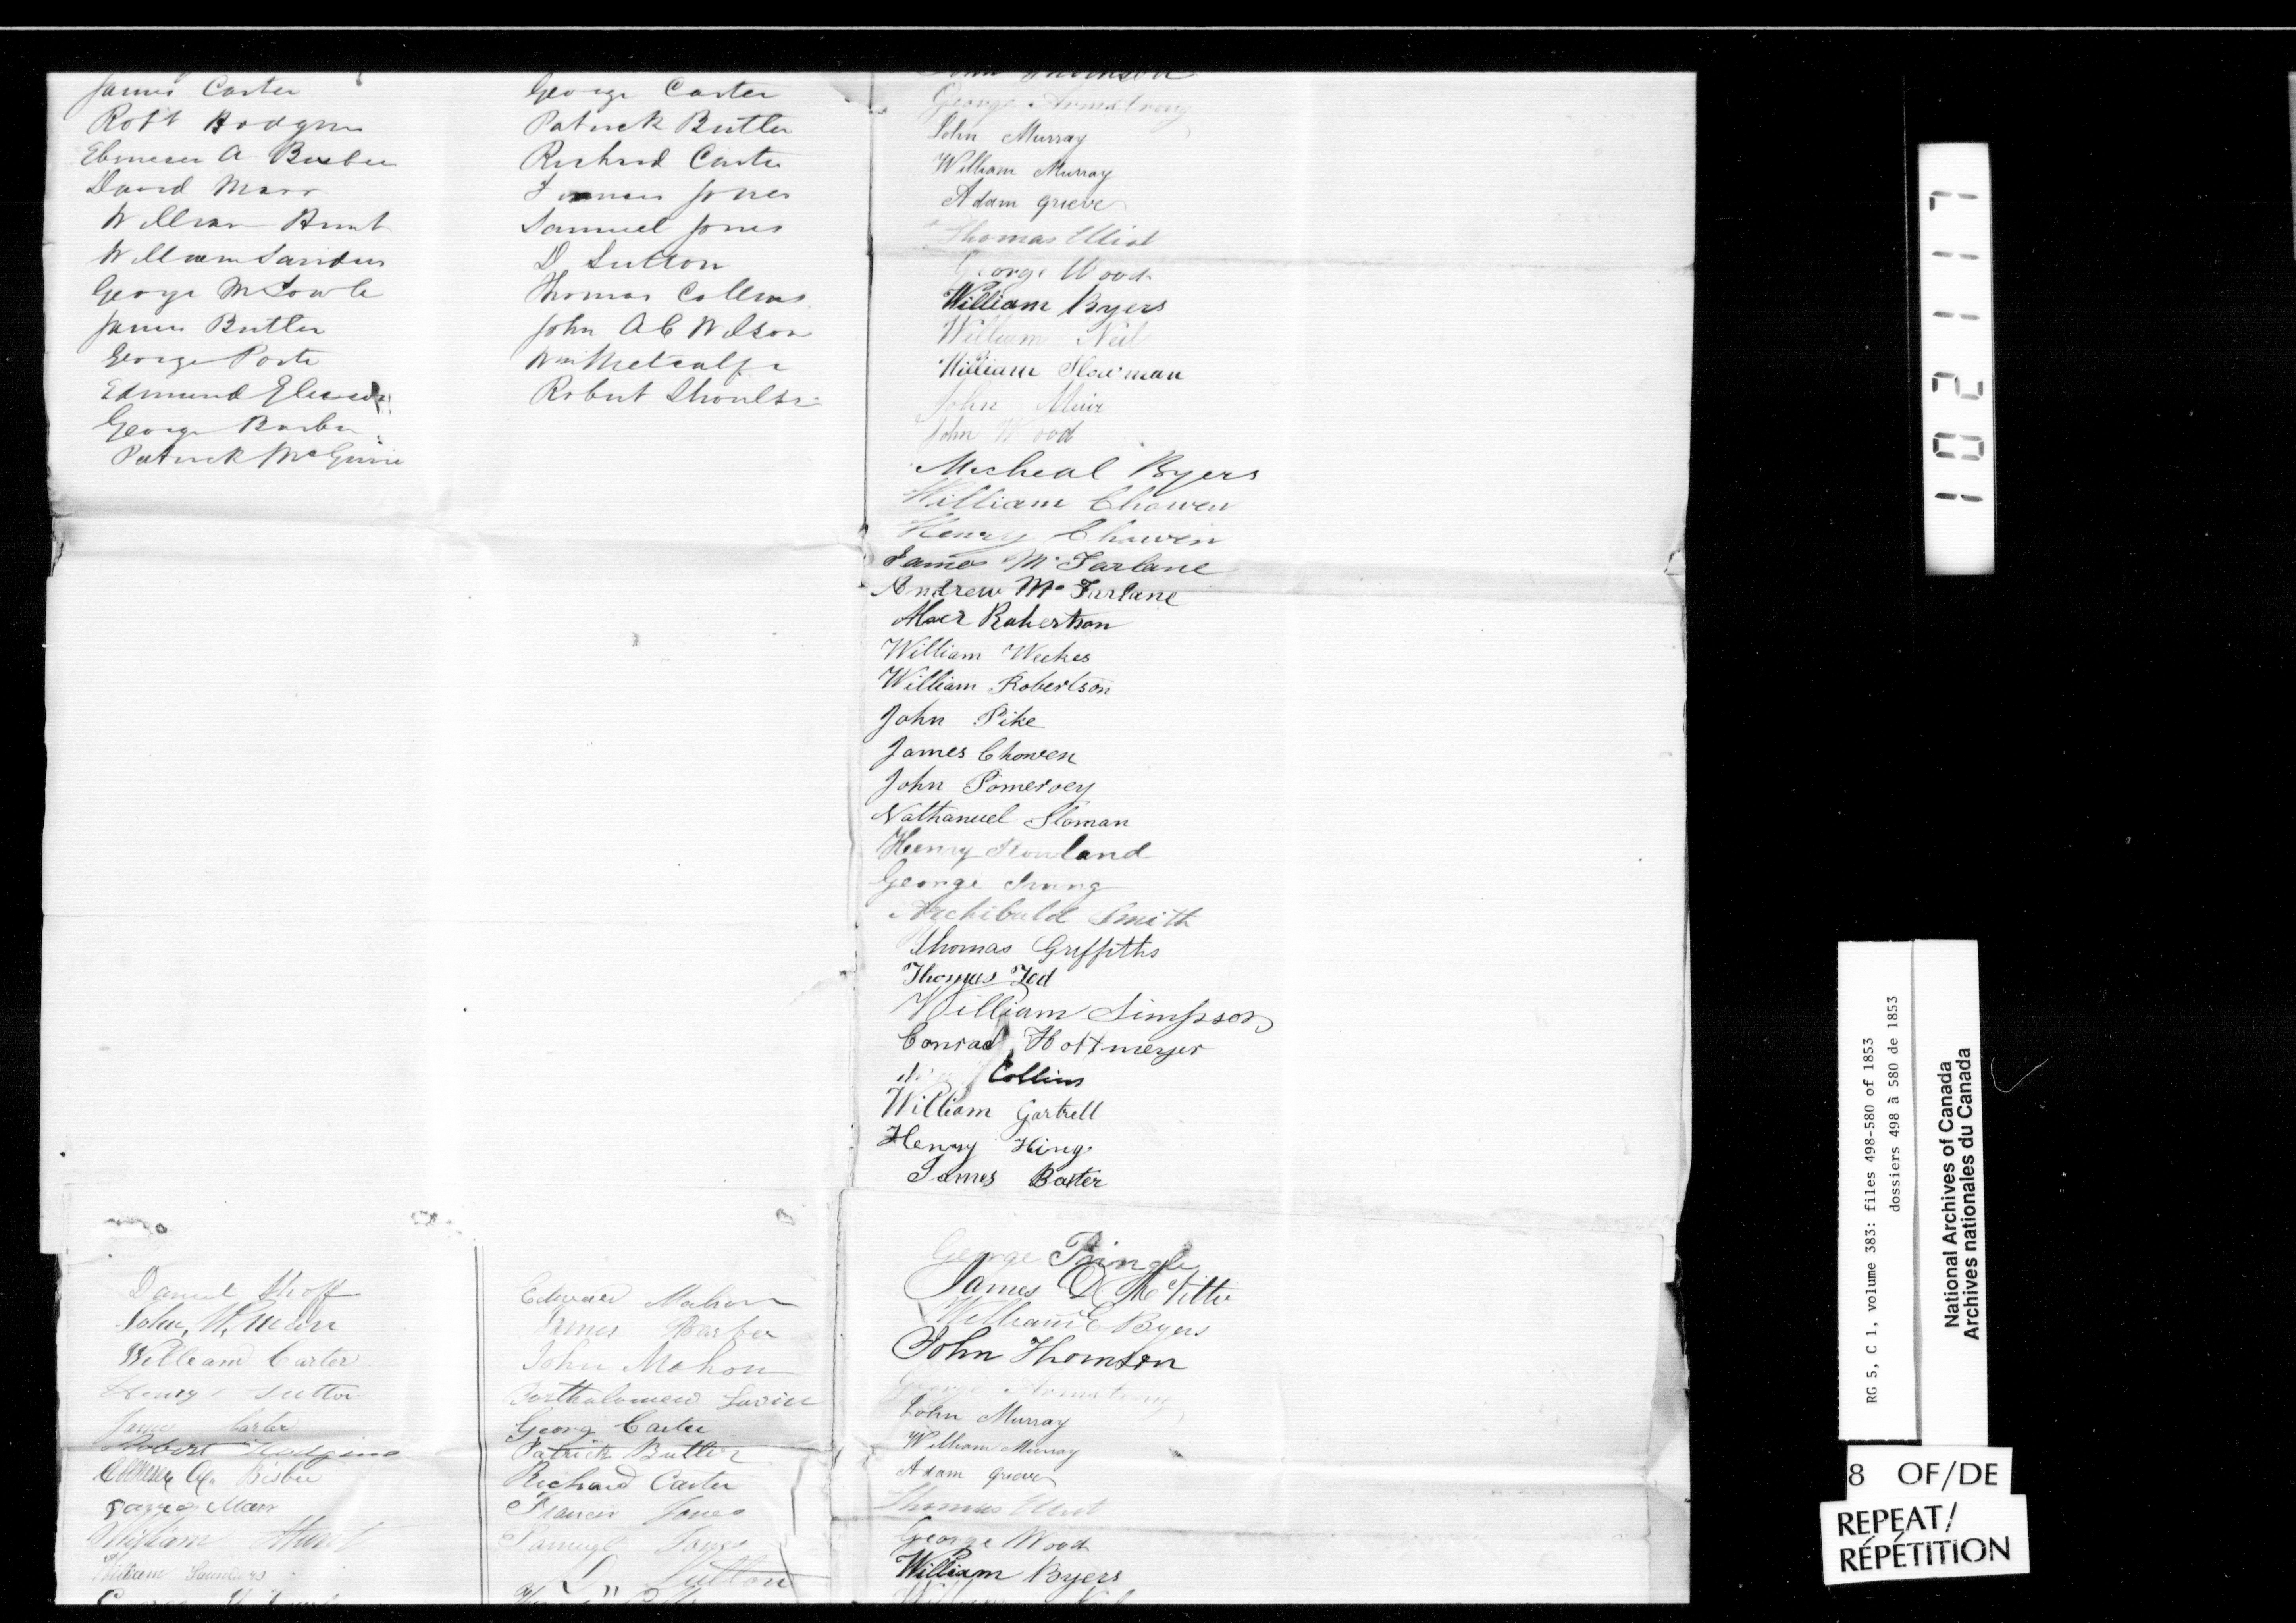 James Carter
Robt Hodgins
Ebenezer A Bisbee
David Marr
William Hunt
William Sanders
George McFowle
James Butler
George Porte
Edmund
George Barber
Patrick McGuire
George Carter
Patrick Butler
Richard Carter
Francis Jones
Samuel Jones
D Sutton
Thomas Collins
John A C Wilson
Wm Metcalfe
Robert
John Thomson
George Armstrong
John Murray
William Murray
Adam grieve
Thomas Eliot
George Wood
William Byers
William Neil
William Slowman
John Muir
John Wood
Micheal Byers
William Chowen
Henry Chowen
James McFarlane
Andrew McFarlane
Robertson
William Weekes
William Robertson
John Pike
James Chowen
John Pomeroey
Nathanuel Sloman
Henry Rowland
George Irving
Archibald Smith
Thomas Griffiths
Thomas Tod
William Simpson
Conrad Hottmeyer
Collins
William Gartrell
Henry King
James Baxter
Daniel Shoff
John W. Marr
William Carter
Henry Sutton
James Carter
Robert Hodgins
Ebenezer A. Bisbee
David Marr
William Hunt
William Saunders
Edward Mahon
James Barber
John Mahon
Bartholomew
George Carter
Patrick Butler
Richard Carter
Francis Jones
Samuel Jones
D Sutton
George Pringle
James D McVittie
William E Byers
John Thomson
George Armstrong
John Murray
William Murray
Adam grieve
Thomas Eliot
George Wood
William Byers
102117
RG 5, C 1, volume 383: files 498-580 of 1853
dossiers 498 à 580 de 1853
National Archives of Canada
Archives nationales du Canada
8 OF/DE
REPEAT/
RÉPÉTITION